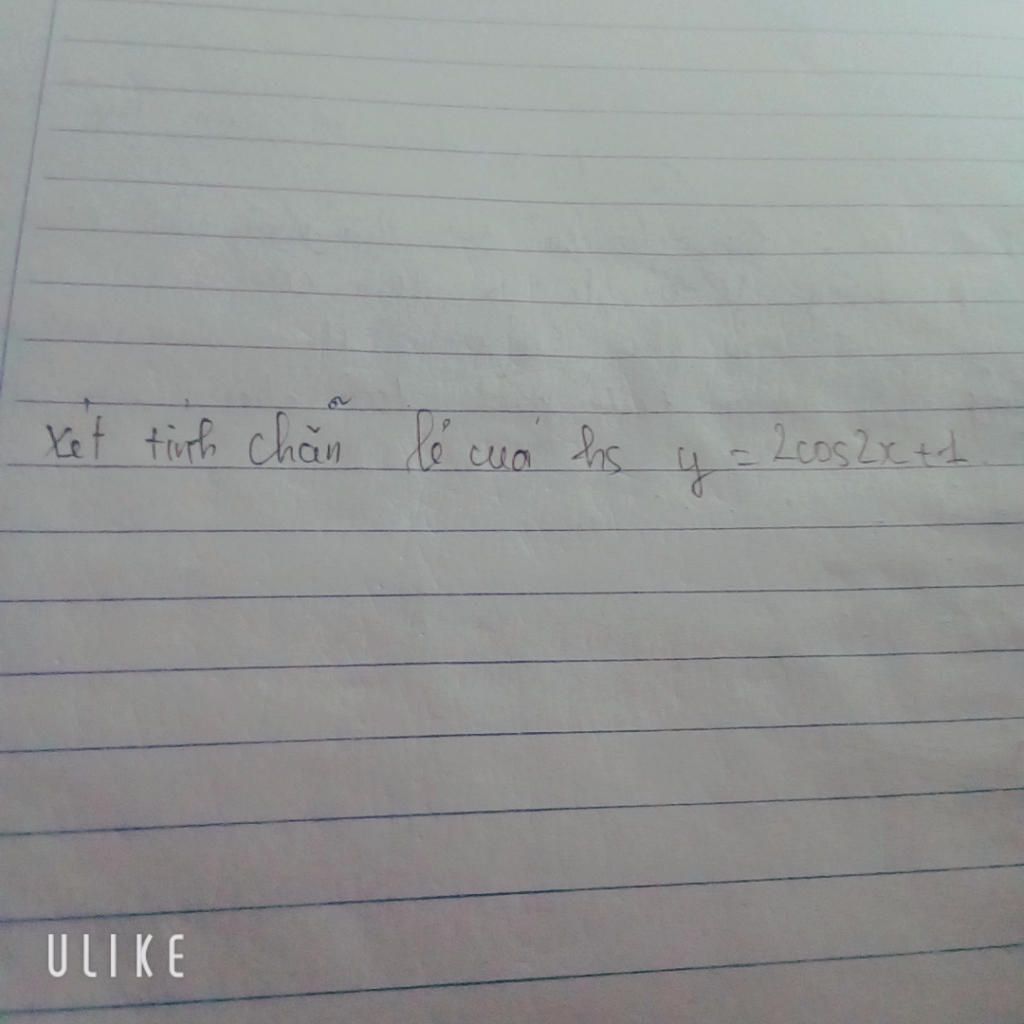 Xét tính chẵn lẻ của hs y = 2cos2x+1
ULIKE